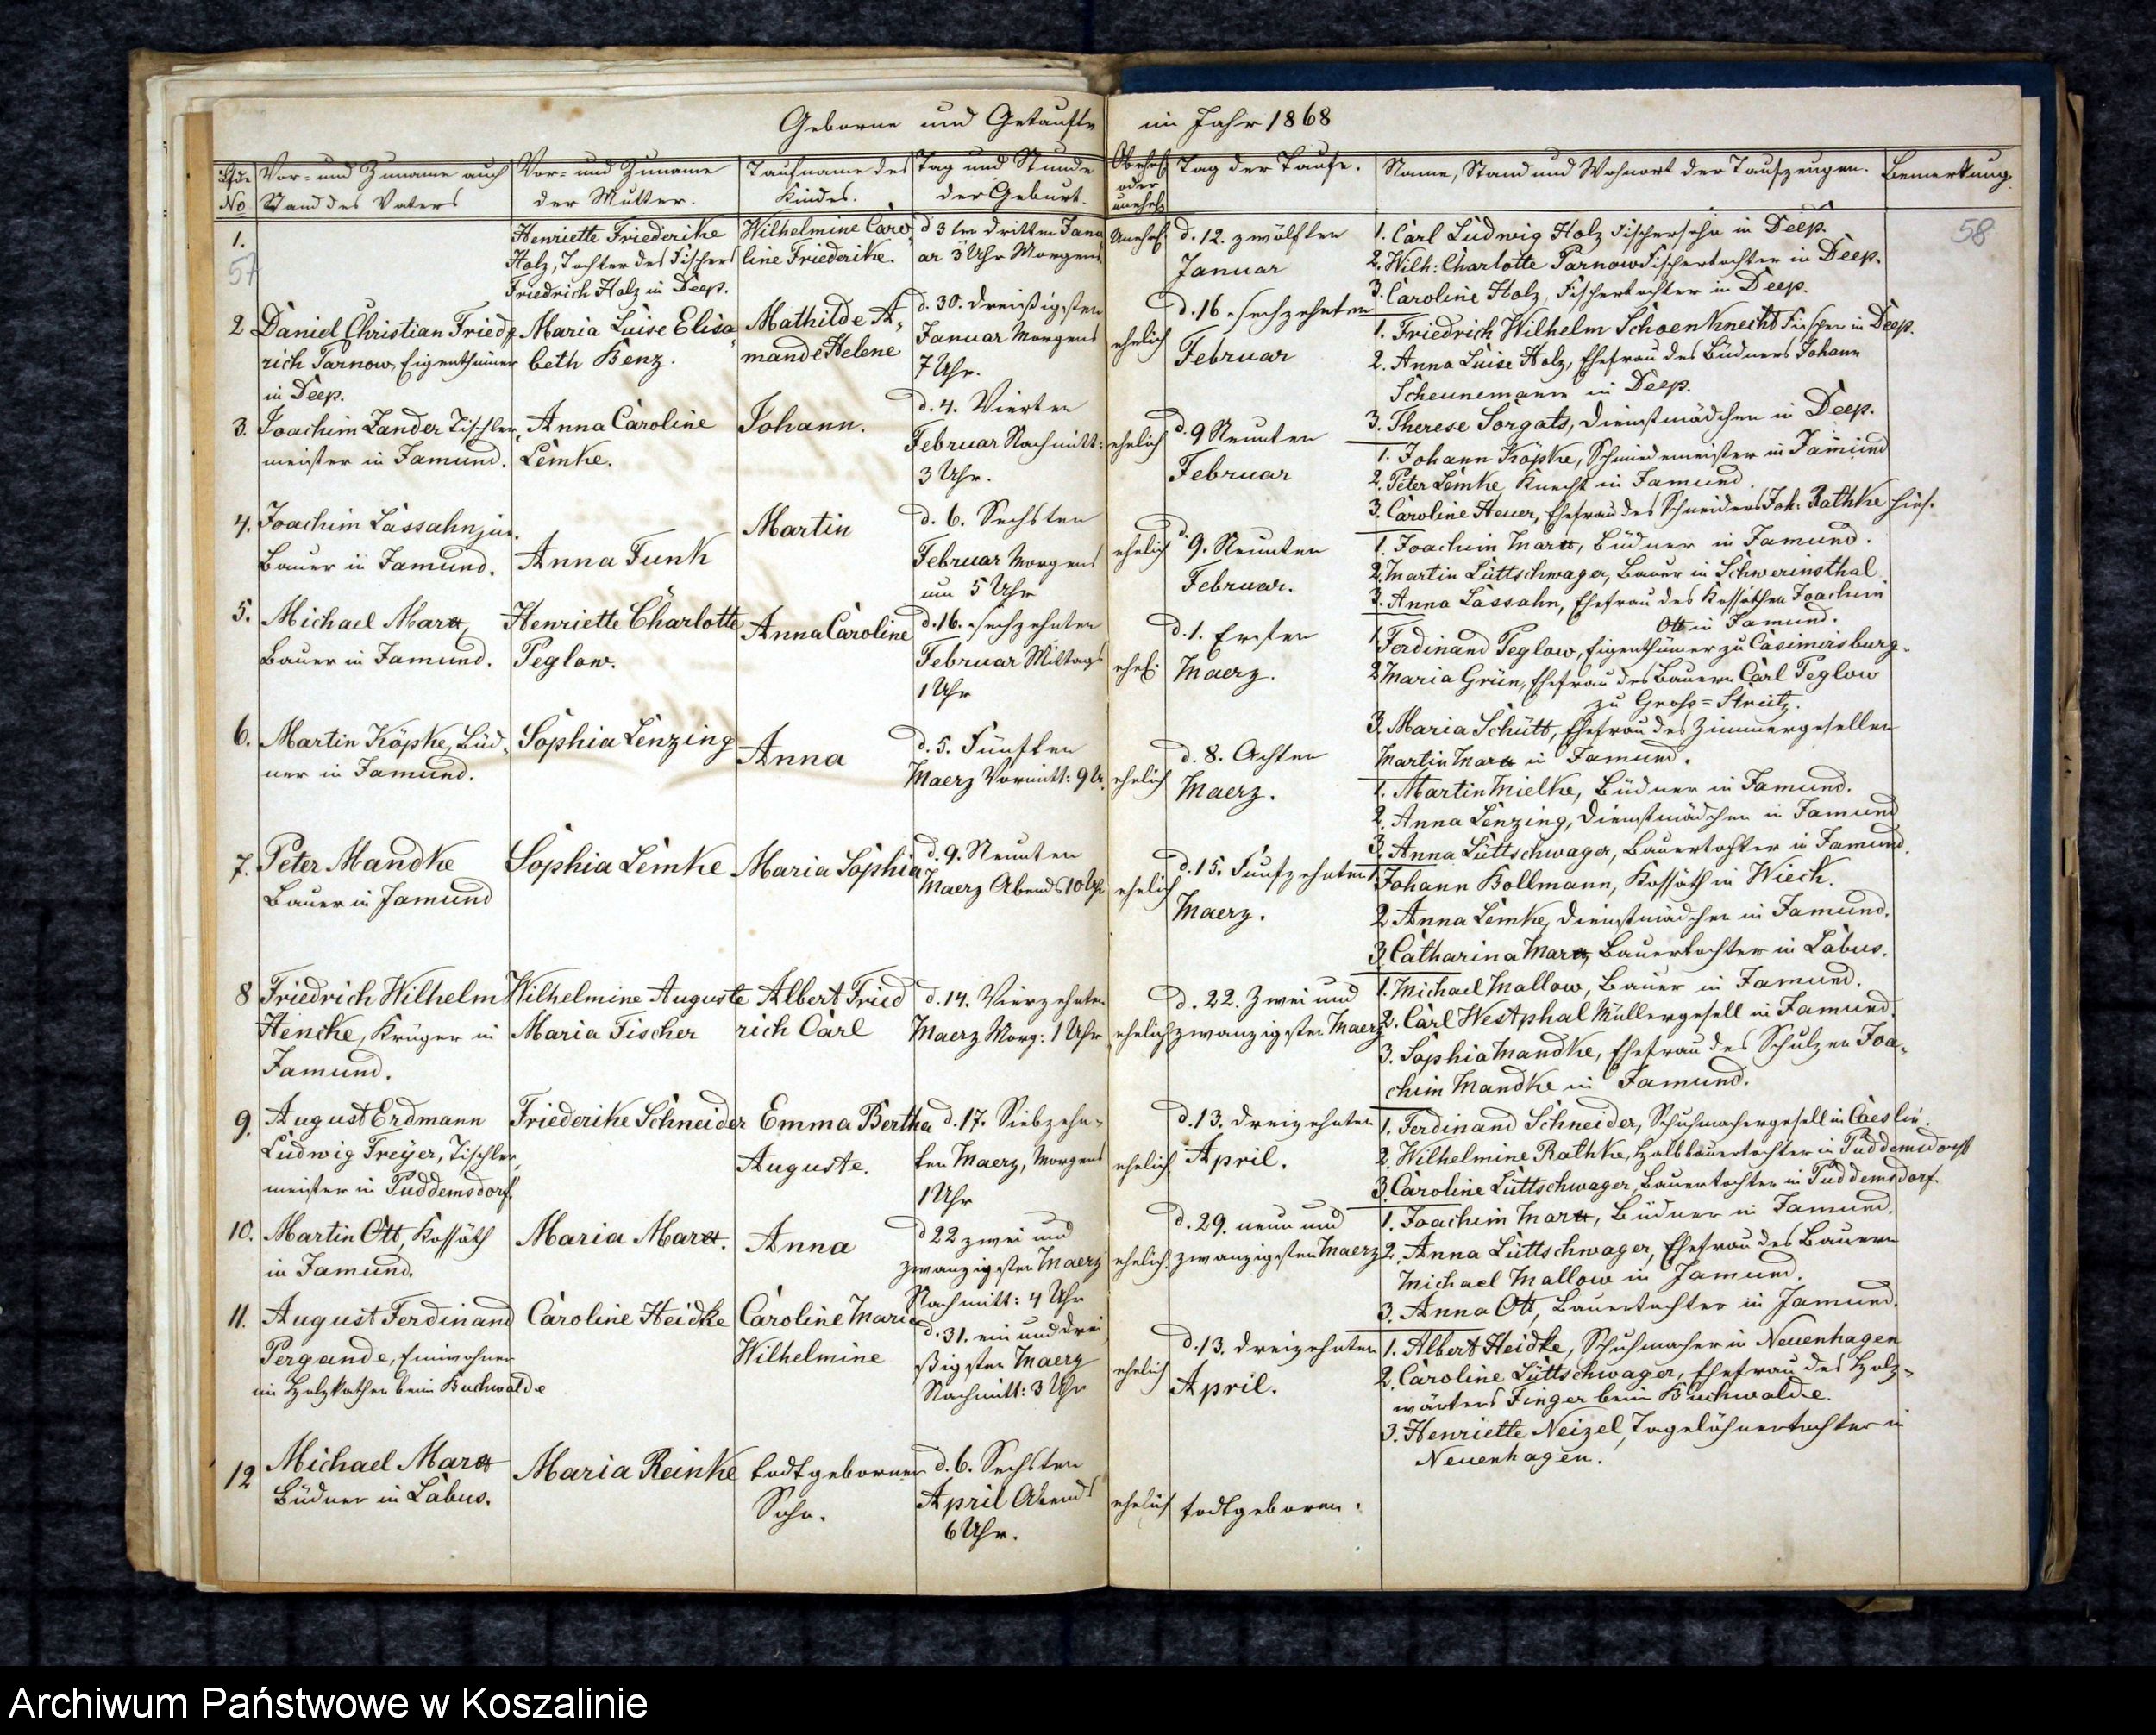 Geborne und Getaufte im Jahr 1868
Lfde No
Vor- und Zuname auch Stand des Vaters
Vor- und Zuname der Mutter.
Taufname des Kindes.
Tag und Stunde der Geburt.
Ob ehel. oder unehel.
Tag der Taufe.
Name, Stand und Wohnort der Taufzeugen.
Bemerkung.
57
58
1.
Henriette Friederike
Holz, Tochter des Fischers
Friedrich Holz in Deep.
Wilhelmine Caro-
line Friederike.
d 3ten dritten Janu
ar 3 Uhr Morgens
Unehel.
d. 12. zwölften
Januar
1. Carl Ludwig Holz Fischersohn in Deep.
2. Wilh: Charlotte Parnow Fischertochter in Deep.
3. Caroline Holz, Fischertochter in Deep.
2
Daniel Christian Fried-
rich Parnow, Eigenthümer
in Deep.
Maria Luise Elisa-
beth Benz.
Mathilde A-
mande Helene
d. 30. dreißigsten
Januar Morgens
7 Uhr.
ehelich
d. 16. sechzehnten
Februar
1. Friedrich Wilhelm Schoenknecht Fischer in Deep.
2. Anna Luise Holz, Ehefrau des Büdners Johann
Scheunemann in Deep.
3. Therese Sorgats, Dienstmädchen in Deep.
3.
Joachim Zander Tischler-
meister in Jamund.
Anna Caroline
Lemke.
Johann.
d. 4. Vierten
Februar Nachmitt:
3 Uhr.
ehelich
d. 9 Neunten
Februar
1. Johann Köpke, Schmiedemeister in Jamund
2. Peter Lemke Knecht in Jamund.
3. Caroline Heuer, Ehefrau des Schneiders Joh: Rathke hies.
4.
Joachim Lassahn, jun.
Bauer in Jamund.
Anna Funk
Martin
d. 6. Sechsten
Februar Morgens
um 5 Uhr
ehelich
d. 9. Neunten
Februar.
1. Joachim Marx, Büdner in Jamund.
2. Martin Lüttschwager, Bauer in Schwerinsthal
3. Anna Lassahn, Ehefrau des Kossäthen Joachim
Ott in Jamund.
5.
Michael Marx,
Bauer in Jamund.
Henriette Charlotte
Peglow.
Anna Caroline
d. 16. sechzehnten
Februar Mittags
1 Uhr
ehel.
d. 1. Ersten
Maerz.
1. Ferdinand Peglow, Eigenthümer zu Casimirsburg.
2 Maria Grün, Ehefrau des Bauern Carl Peglow
zu Groß-Streitz.
3. Maria Schütt, Ehefrau des Zimmergesellen
Martin Marx in Jamund.
6.
Martin Köpke, Büd-
ner in Jamund.
Sophia Lenzing
Anna
d. 5. Fünften
Maerz Vormitt: 9 U.
ehelich
d. 8. Achten
Maerz.
1. Martin Mielke, Büdner in Jamund.
2. Anna Lenzing, Dienstmädchen in Jamund
3. Anna Lüttschwager, Bauertochter in Jamund.
7.
Peter Mandke
Bauer in Jamund
Sophia Lemke
Maria Sophia
d. 9. Neunten
Maerz Abends 10 Uhr
ehelich
d. 15. Funfzehnten
Maerz.
1. Johann Bollmann, Kossäth in Wieck.
2 Anna Lemke, Dienstmädchen in Jamund.
3. Catharina Marx, Bauertochter in Labus.
8
Friedrich Wilhelm
Hencke, Krüger in
Jamund.
Wilhelmine Auguste
Maria Fischer
Albert Fried
rich Carl
d. 14. Vierzehnten
Maerz Morg: 1 Uhr
ehelich
d. 22. Zwei und
zwanzigsten Maerz
1. Michael Mallow, Bauer in Jamund.
2. Carl Westphal Müllergesell in Jamund.
3. Sophia Mandke, Ehefrau des Schulzen Joa-
chim Mandke in Jamund.
9.
August Erdmann
Ludwig Freyer, Tischler
meister in Puddemsdorf.
Friederike Schneider
Emma Bertha
Auguste.
d. 17. Siebzehn-
ten Maerz, Morgens
1 Uhr
ehelich
d. 13. dreizehnten
April.
1. Ferdinand Schneider, Schuhmachergesell in Coeslin.
2. Wilhelmine Rathke, Halbbauertochter in Puddemsdorf
3. Caroline Lüttschwager, Bauertochter in Puddemsdorf.
10.
Martin Ott, Kossäth
in Jamund.
Maria Marx.
Anna
d 22 zwei und
zwanzigsten Maerz
Nachmitt: 4 Uhr
ehelich.
d. 29. neun und
zwanzigsten Maerz
1. Joachim Marx, Büdner in Jamund.
2. Anna Lüttschwager, Ehefrau des Bauern
Michael Mallow in Jamund.
3. Anna Ott, Bauertochter in Jamund.
11.
August Ferdinand
Pergande, Einwohner
im Holzkathen beim Buchwalde
Caroline Heidke
Caroline Marie
Wilhelmine
d. 31. ein und drei
ßigsten Maerz
Nachmitt: 3 Uhr
ehelich
d. 13. dreizehnten
April.
1. Albert Heidke, Schuhmacher in Neuenhagen
2. Caroline Lüttschwager, Ehefrau des Holz-
wärters Finger beim Buchwalde.
3. Henriette Neizel, Tagelöhnertochter in
Neuenhagen.
12
Michael Marx
Büdner in Labus.
Maria Reinke
todtgeborner
Sohn.
d. 6. Sechsten
April Abends
6 Uhr.
ehelich
todtgeboren.
Archiwum Państwowe w Koszalinie